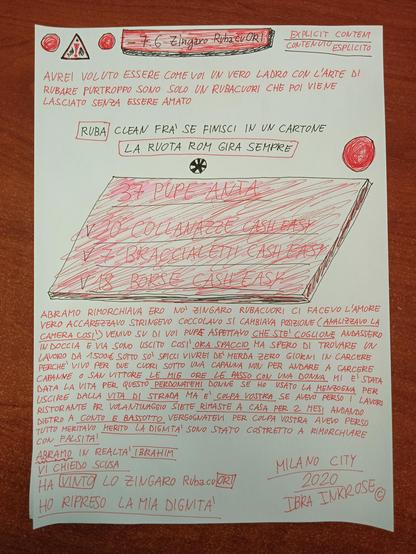 - 7.6 Zingaro RubacuORI
EXPLICIT CONTEM
CONTENUTO ESPLICITO
AVREI VOLUTO ESSERE COME VOI UN VERO LADRO CON L'ARTE DI
RUBARE PURTROPPO SONO SOLO UN RUBACUORI CHE POI VIENE
LASCIATO SENZA ESSERE AMATO
RUBA CLEAN FRA' SE FINISCI IN UN CARTONE
LA RUOTA ROM GIRA SEMPRE
37 PUPE ANIA
✓ 30 COLLANAZZE CASH EASY
✓ 7 BRACCIALETTI CASH EASY
✓ 18 BORSE CASH EASY
ABRAMO RIMORCHIAVA ERO NO' ZINGARO RUBACUORI CI FACEVO L'AMORE
VERO ACCAREZZAVO STRINGEVO COCCOLAVO SI CAMBIAVA POSIZIONE (ANALIZZAVO LA
CAMERA COSI') VENIVO SU DI VOI PUPE ASPETTAVO CHE STE' COGLIONE ANDASSERO
IN DOCCIA E VIA SONO USCITO COSI' ORA SPACCIO MA SPERO DI TROVARE UN
LAVORO DA 1500€ SOTTO SO' SPICCI VIVREI DE' MERDA ZERO GIORNI IN CARCERE
PERCHE' VIVO PER DUE CUORI SOTTO UNA CAPANNA NON PER ANDARE A CARCERE
CAPANNE O SAN VITTORE LE MIE ORE LE PASSO CON UNA DONNA MI E' STATA
DATA LA VITA PER QUESTO PERDONATEMI DONNE SE HO USATO LA MENZOGNA PER
USCIRE DALLA VITA DI STRADA MA E' COLPA VOSTRA SE AVEVO PERSO I LAVORI
RISTORANTE PR VOLANTINAGGIO SIETE RIMASTE A CASA PER 2 MESI ANDANDO
DIETRO A CONTE E BASSOTTO VERGOGNATEVI PER COLPA VOSTRA AVEVO PERSO
TUTTO MERITAVO MERITO LA DIGNITA' SONO STATO COSTRETTO A RIMORCHIARE
CON FALSITA'
ABRAMO IN REALTA' IBRAHIM
VI CHIEDO SCUSA
HA VINTO LO ZINGARO RubacuORI
HO RIPRESO LA MIA DIGNITA'
MILANO CITY
2020
IBRA INKROSE ©